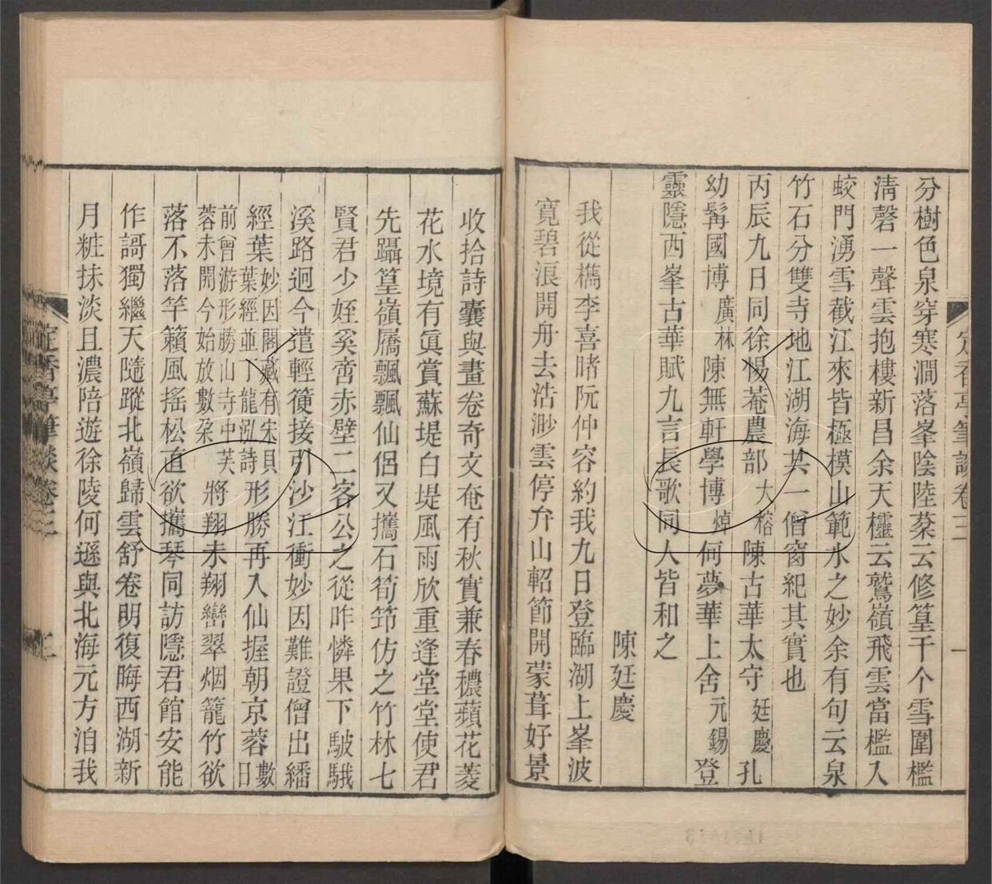 分樹色泉穿寒澗落峯陰陸棻云修篁千个雪圍檻
淸磬一聲雲抱樓新昌余天櫺云鷲嶺飛雲當檻入
蛟門湧雪截江來皆極模山範水之妙余有句云泉
竹石分雙寺地江湖海共一僧窗紀其實也
丙辰九日同徐惕菴農部大榕陳古華太守廷慶孔
幼髯國博廣林陳無軒學博焯何夢華上舍元錫登
靈隱西峯古華賦九言長歌同人皆和之
陳廷慶
我從檇李喜晤阮仲容約我九日登臨湖上峯波
寛碧浪開舟去浩渺雲停弁山軺節開蒙茸好景
收拾詩囊與畫卷奇文奄有秋實兼春穠蘋花菱
花水境有眞賞蘇堤白堤風雨欣重逢堂堂使君
先躡篁嶺屩飄飄仙侶又攜石筍筇仿之竹林七
賢君少姪奚啻赤壁二客公之從昨憐果下駊騀
溪路迥今遣輕箯接引沙江衝妙因難證僧出繙
經葉妙因閣藏有宋貝葉經並丁龍泓詩形勝再入仙握朝京蓉數日
前曾游形勝山寺中芙蓉未開今始放數朶將翔未翔巒翠烟籠竹欲
落不落竿籟風搖松直欲攜琴同訪隱君館安能
作謌獨繼天隨蹤北嶺歸雲舒卷明復晦西湖新
月粧抹淡且濃陪遊徐陵何遜與北海元方洎我
定香亭筆談卷三
一